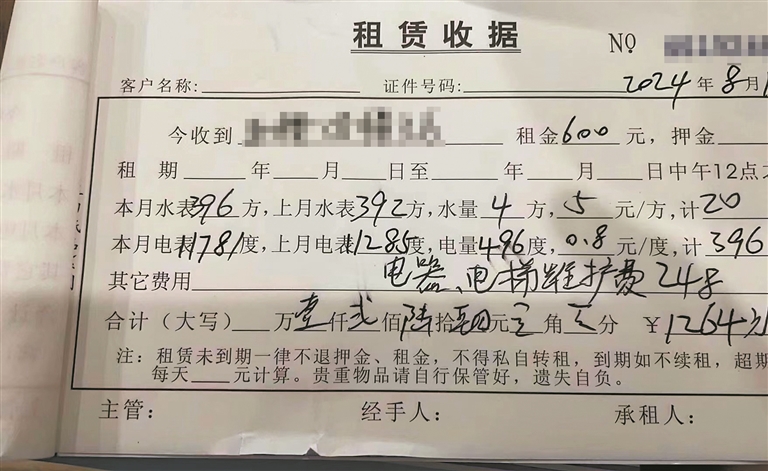 租赁收据 NO
客户名称: 证件号码: 2024年8月1
今收到 租金600元，押金
租 期 年 月 日至 年 月 日中午12点
本月水表396方，上月水表392方，水量4方，5元/方，计20
本月电表11781度，上月电表11285度，电量496度，0.8元/度，计396
其它费用 电器、电梯维护费248
合计（大写） 万壹仟贰佰陆拾肆元 角 分 ¥1264元
注：租赁未到期一律不退押金、租金，不得私自转租，到期如不续租，超期
每天 元计算。贵重物品请自行保管好，遗失自负。
主管： 经手人： 承租人：